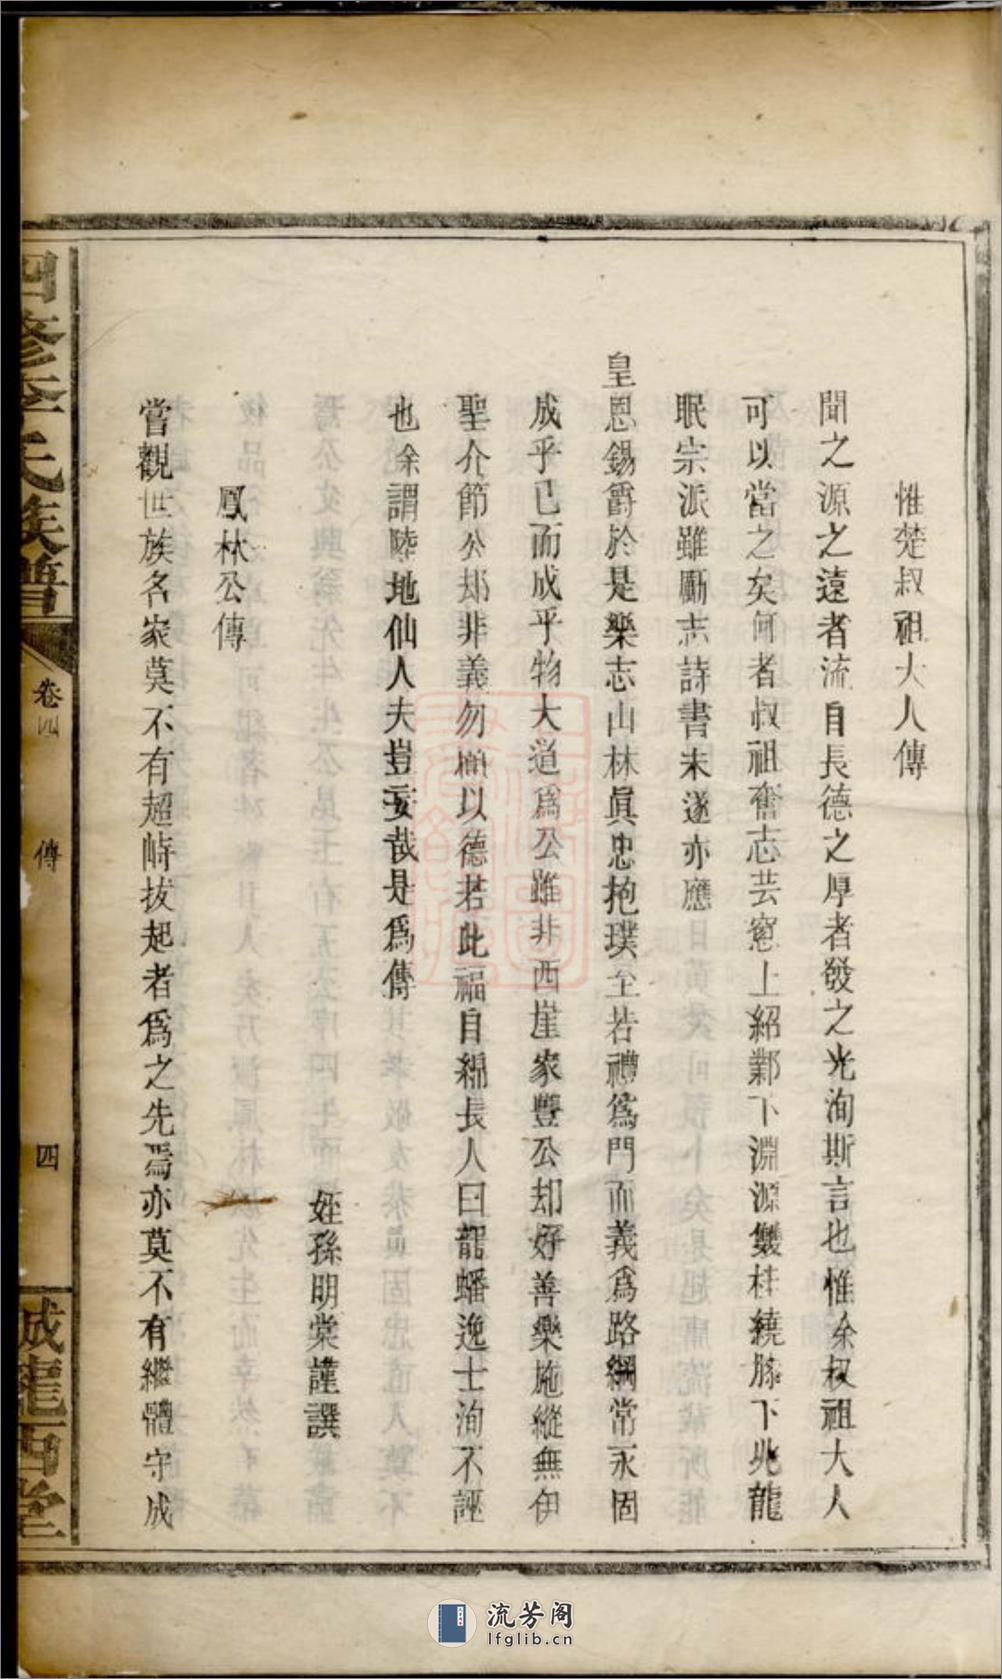 惟楚叔祖大人傳
聞之源之遠者流自長德之厚者發之光洵斯言也惟余叔祖大人
可以當之矣何者叔祖奮志芸窻上紹鄴下淵源雙桂繞膝下兆龍
眠宗派雖勵志詩書未遂亦應
皇恩錫爵於是樂志山林眞忠抱璞至若禮爲門而義爲路綱常永固
成乎已而成乎物大道爲公雖非西崖家豐公却好善樂施縱無伊
聖介節公却非義勿顧以德若此福自綿長人曰龍蟠逸士洵不誣
也余謂陸地仙人夫豈妄哉是爲傳
姪孫明棠謹譔
鳳林公傳
嘗觀世族名家莫不有超峙拔起者爲之先焉亦莫不有繼體守成
四修李氏族譜
卷四
傳
四
龍西堂
流芳阁
lfglib.cn